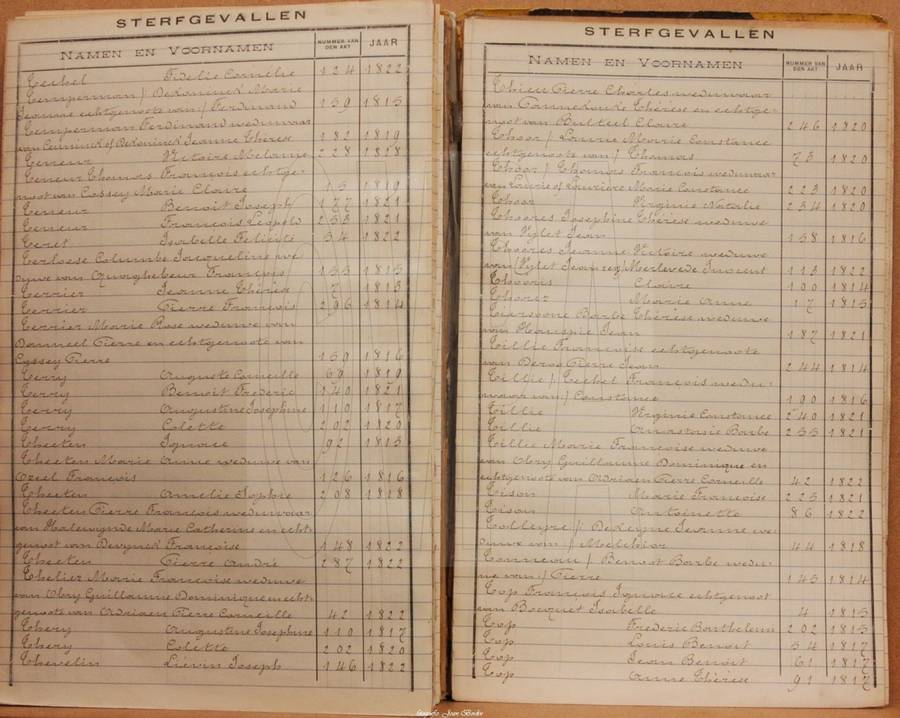 STERFGEVALLEN
NAMEN EN VOORNAMEN NUMMER VAN DEN AKT JAAR
Teckel Fidelie Cornélie 124 1822
Temperman / Dekoninck Marie
Jeanne echtgenoote van / Ferdinand 159 1815
Temperman Ferdinand weduwaar
van Ceuninck of Dekoninck Jeanne Thérèse 182 1819
Teneur Victoire Melanie 228 1818
Teneur Thomas François echtge-
noot van Cossey Marie Claire 15 1819
Teneur Benoit Joseph 177 1821
Teneur François Léopold 253 1821
Teret Isabelle Felicité 54 1822
Terloese Columbe Jacqueline we
duwe van Quaghebeur François 155 1815
Terrier Jeanne Thérèse 7 1813
Terrier Pierre François 296 1814
Terrier Marie Rose weduwe van
Dammeel Pierre en echtgenoote van
Cossey Pierre 159 1816
Terry Auguste Corneille 69 1819
Terry Benoit Frederic 140 1821
Terry Augustine Josephine 110 1817
Terry Colette 202 1820
Theeten Ignace 92 1815
Theeten Marie Anne weduwe van
Ozeel François 126 1816
Theeten Amélie Sophie 208 1818
Theeten Pierre François weduwaar
van Halewynde Marie Catherine en echt-
genoot van Devynck Françoise 148 1822
Theeten Pierre André 287 1822
Thelier Marie Françoise weduwe
van Olory Guillaume Dominique en echt-
genoote van Adriaen Pierre Corneille 42 1822
Thery Augustine Josephine 110 1817
Thery Colette 202 1820
Thevelin Lievin Joseph 146 1822
STERFGEVALLEN
NAMEN EN VOORNAMEN NUMMER VAN DEN AKT JAAR
Thieu Pierre Charles weduwaar
van Cannekouke Thérèse en echtge-
noot van Butteel Claire 246 1820
Thoor / Lourie Marie Constance
echtgenoote van / Thomas 73 1820
Thoor / Thomas François weduwaar
van Lourie of Lourière Marie Constance 223 1820
Thoor Virginie Natalie 234 1820
Thoores Josephine Thérèse weduwe
van Vylet Jean 58 1816
Thoores Jeanne Victoire weduwe
van Vylet Jean en Merlevede Innocent 113 1822
Thooris Claire 100 1814
Thorez Marie Anne 17 1815
Tiersoone Barbe Thérèse weduwe
van Hauspie Jean 187 1821
Tillie Françoise echtgenoote
van Deroo Pierre Jean 244 1814
Tillie / Teckel François wedu-
waar van / Constance 190 1816
Tillie Virginie Constance 240 1821
Tillie Anastasie Barbe 255 1821
Tillie Marie Françoise weduwe
van Olory Guillaume Dominique en
echtgenoote van Adriaen Pierre Corneille 42 1822
Tison Marie Françoise 225 1821
Tison Antoinette 86 1822
Tolleyre / DeKeyne Jeanne we-
duwe van / Melchior 44 1818
Tonneau / Benost Barbe wedu-
we van / Pierre 145 1814
Top François Ignace echtgenoot
van Bocquet Isabelle 4 1815
Top Frederic Barthelemi 202 1815
Top Louis Benoit 54 1817
Top Jean Benoit 61 1817
Top Anne Thérèse 91 1817